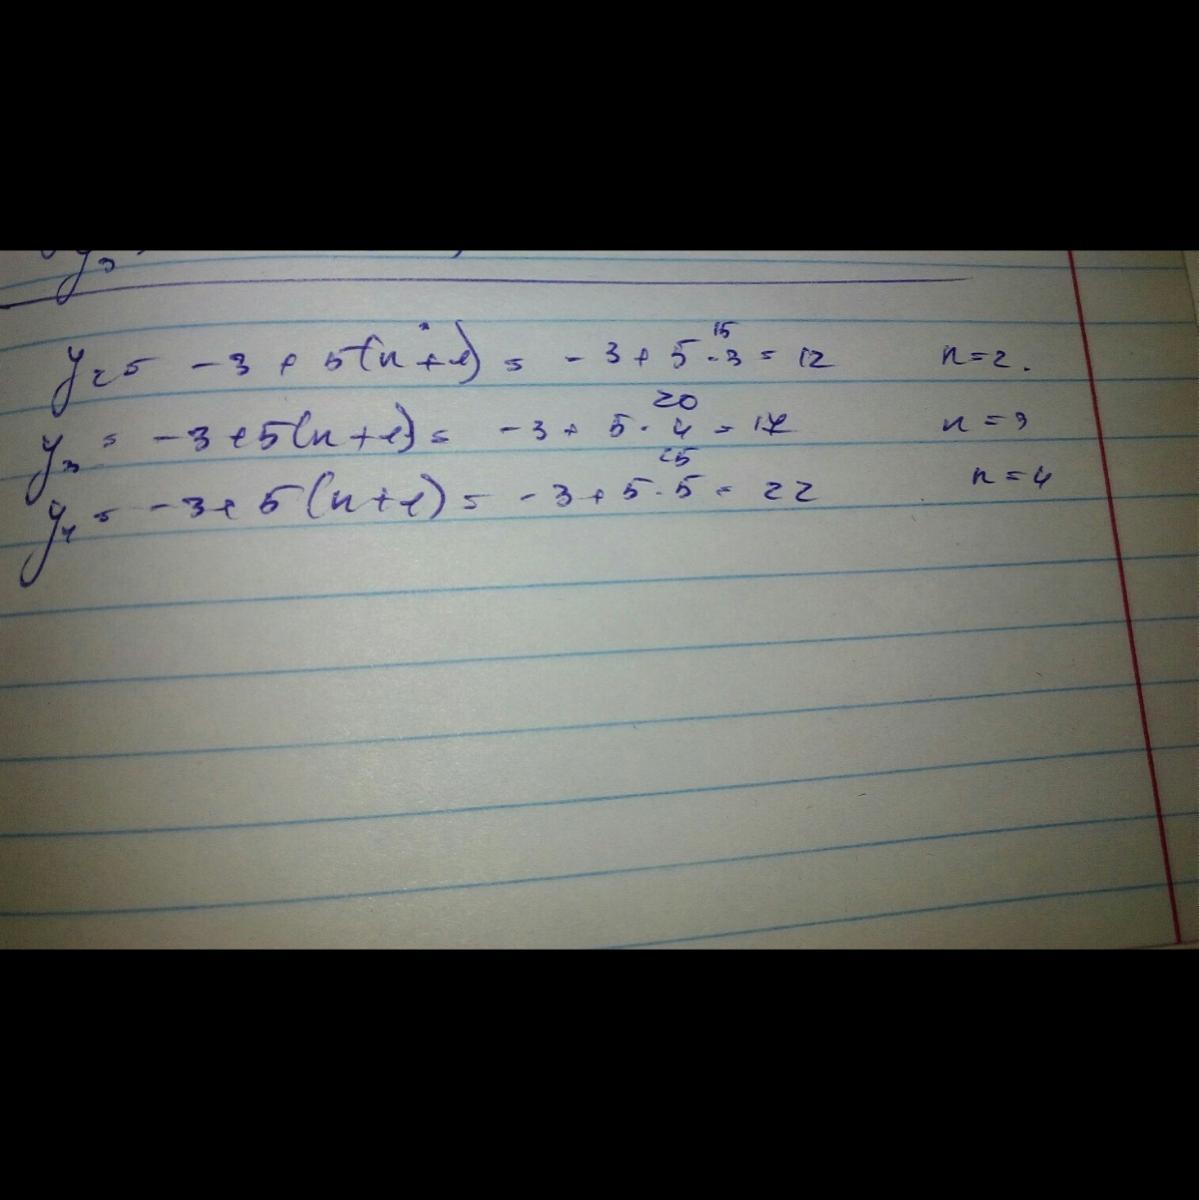 y₂ = -3 + 5(n+1) = -3 + 5·3 = 12 n=2.
15
y₃ = -3+5(n+1) = -3 + 5·4 = 17 n=3
20
y₄ = -3+5(n+1) = -3+5·5 = 22 n=4
25